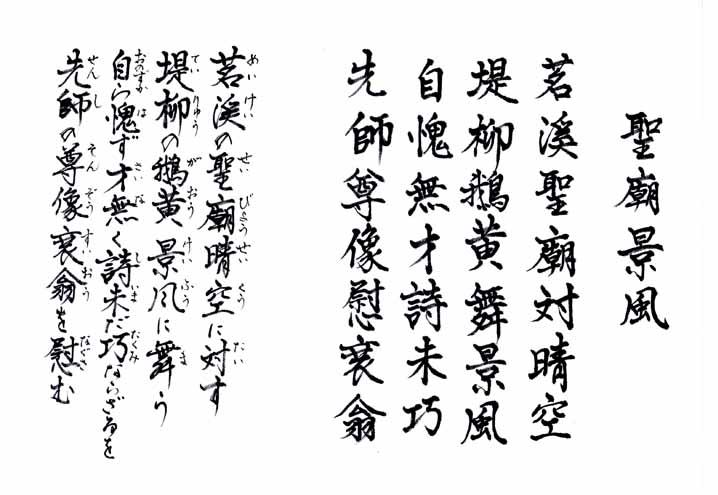 聖廟景風
茗溪聖廟対晴空
堤柳鵝黄舞景風
自愧無才詩未巧
先師尊像慰衰翁
茗溪の聖廟晴空に対す
めいけい せいびょうせいくう たい
堤柳の鵝黄景風に舞う
ていりゅう がおうけいふう ま
自ら愧ず才無く詩未だ巧ならざるを
おのずか は さいな しいま たくみ
先師の尊像衰翁を慰む
せんし そんぞうすいおう なぐさ